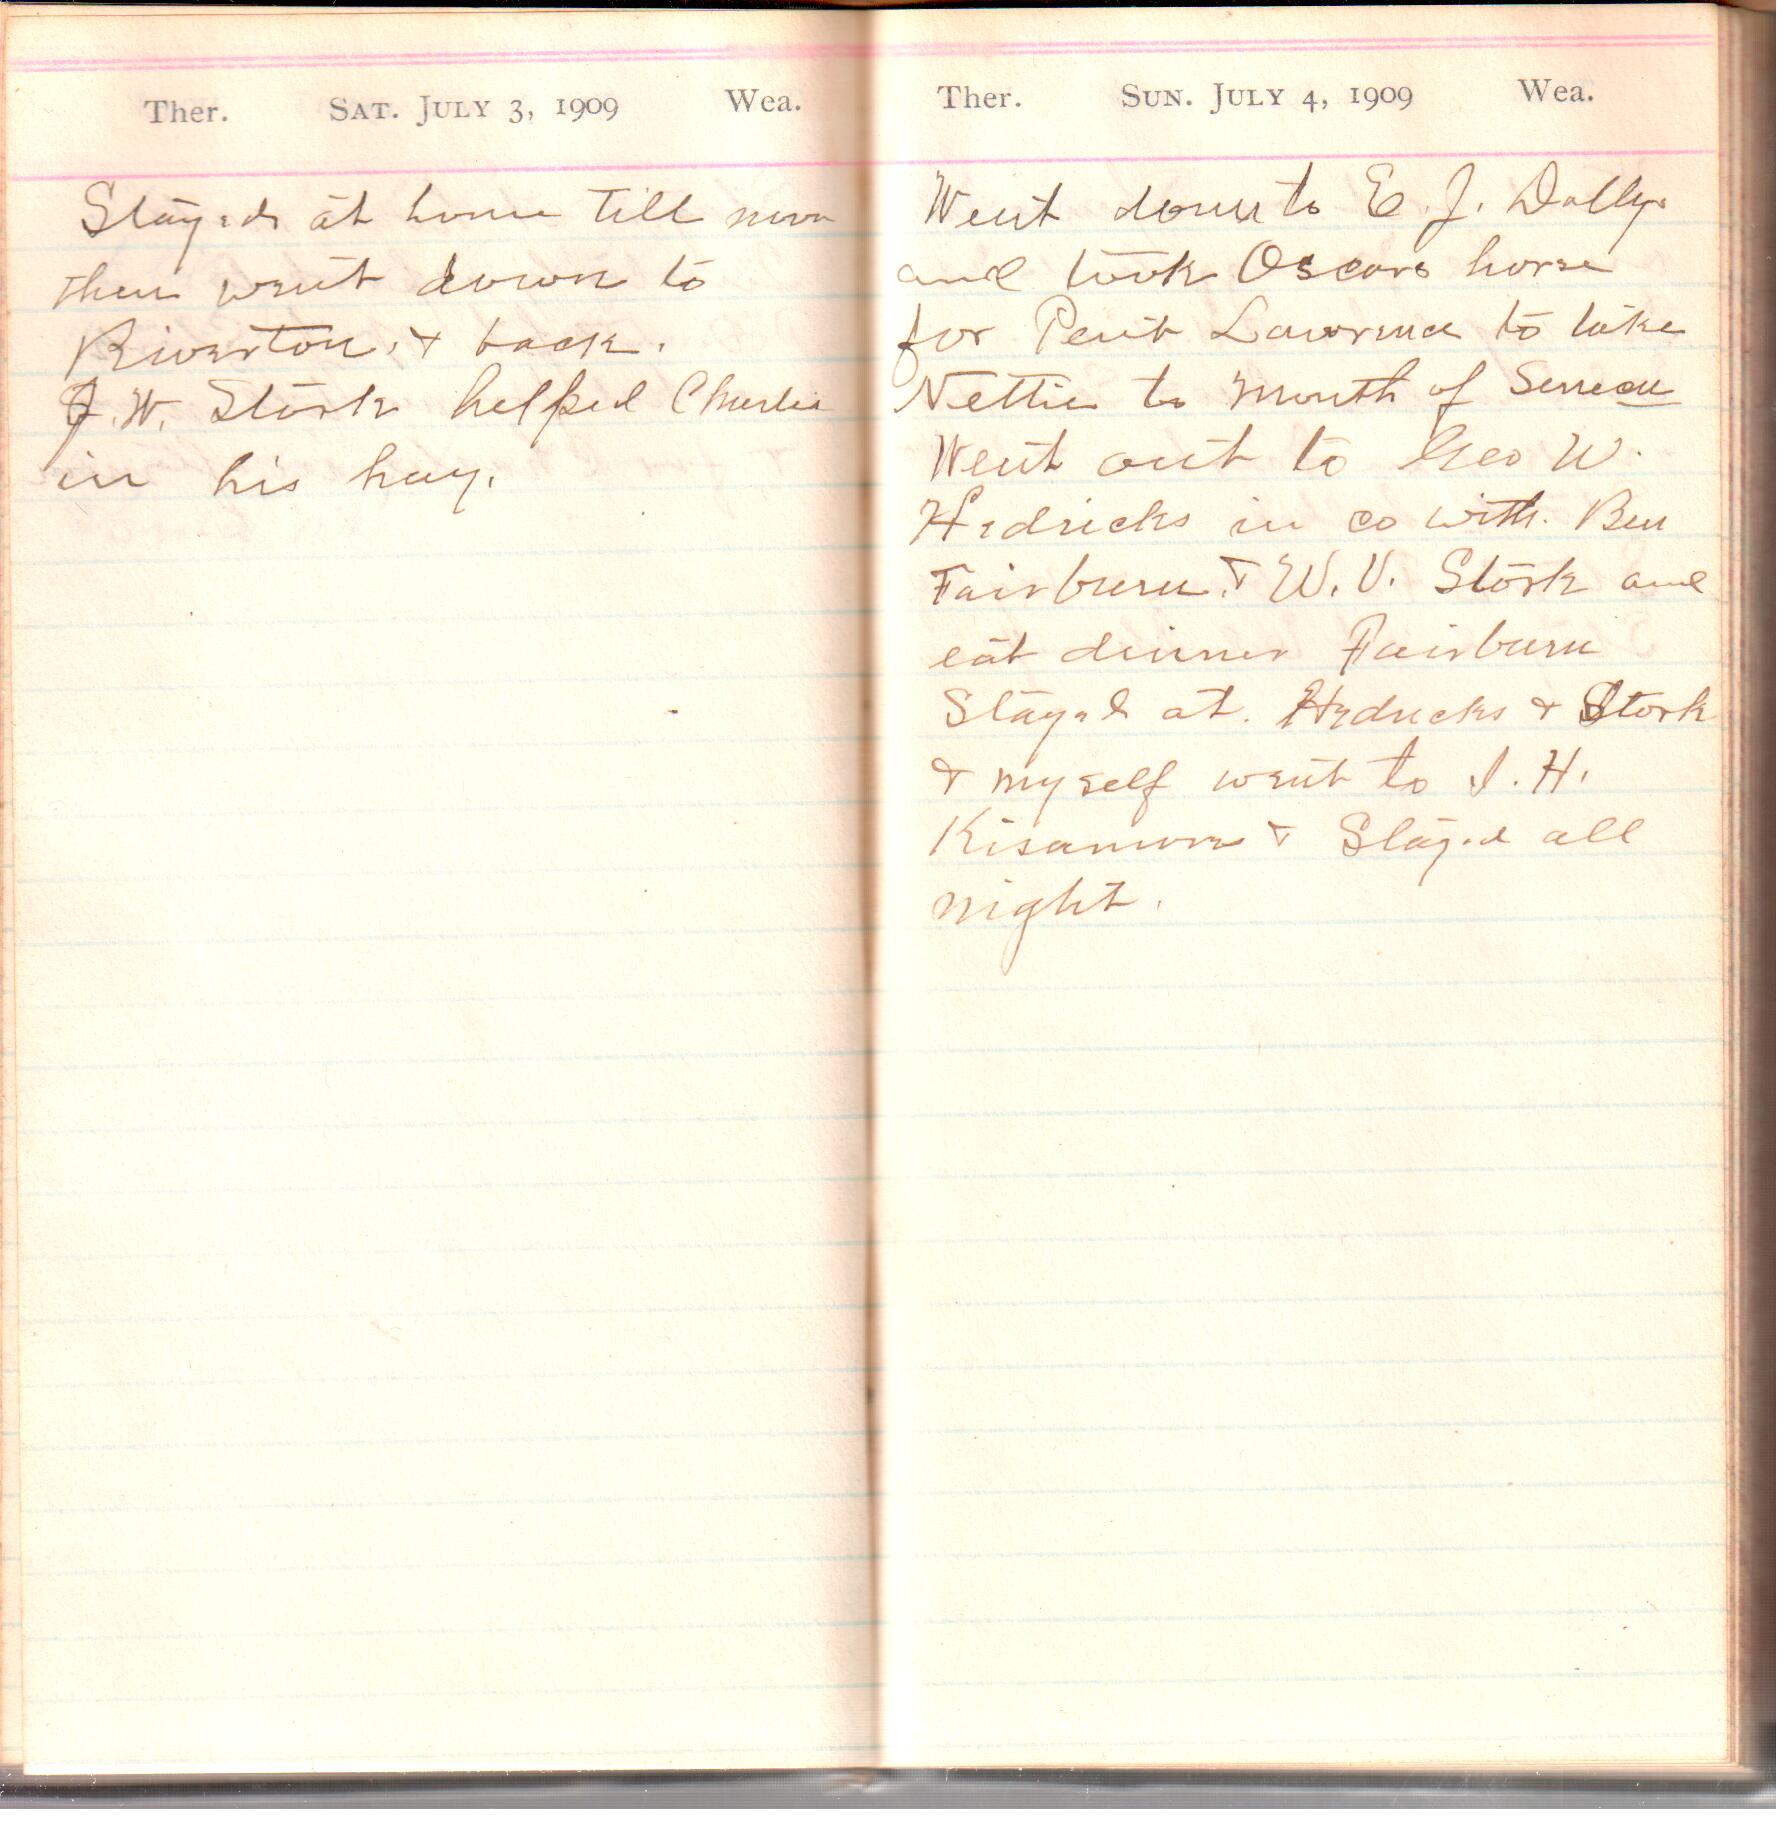 Ther. SAT. JULY 3, 1909 Wea.
Stayed at home till noon
then went down to
Riverton, & back.
J. W. Stork helped Charlie
in his hay.
Ther. SUN. JULY 4, 1909 Wea.
Went down to E. J. Dollys
and took Oscars horse
for Lawrence to take
Nettie to mouth of Seneca
Went out to Geo W.
Hedricks in co with. Ben
Fairburn & W. V. Stork and
eat dinner Fairburn
Stayed at. Hedricks & Stork
& myself went to I. H.
Kisamore & Stayed all
night.